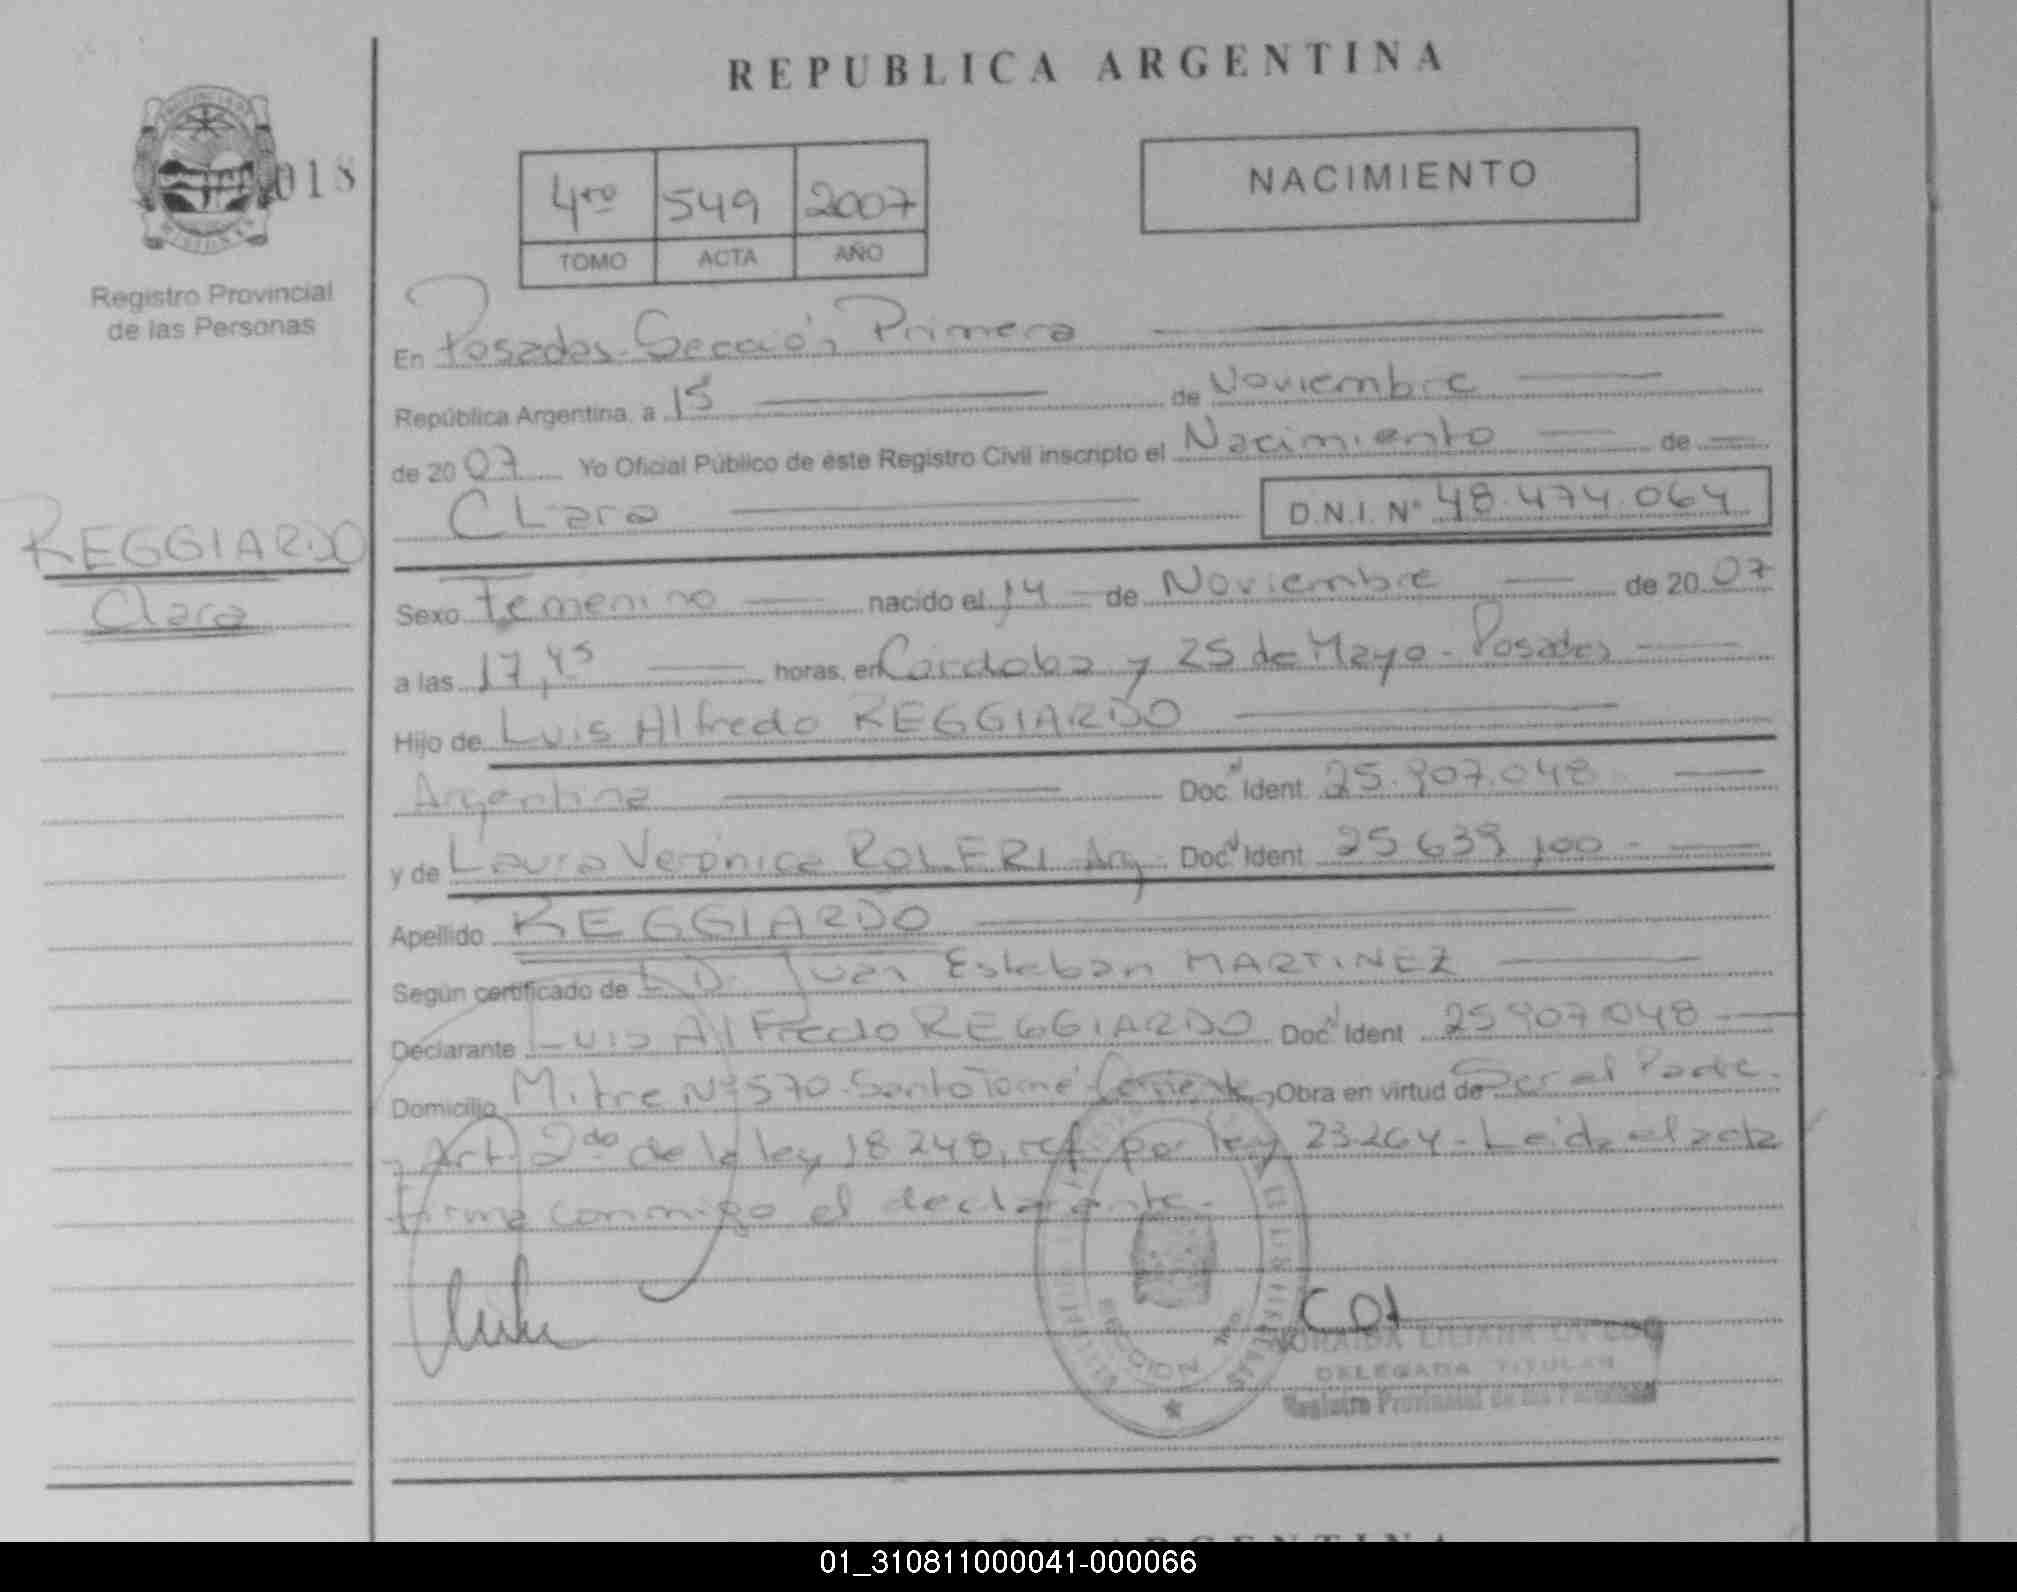 REPUBLICA ARGENTINA
PROVINCIA
MISIONES
018
Registro Provincial
de las Personas
4to 549 2007
TOMO ACTA AÑO
NACIMIENTO
En Posadas - Sección Primera
República Argentina, a 15 de Noviembre
de 2007 Yo Oficial Público de este Registro Civil inscripto el Nacimiento de
Clara D.N.I. Nº 48.474.064
REGGIARDO
Clara
Sexo Femenino nacido el 14 de Noviembre de 2007
a las 17,45 horas, en Cordoba y 25 de Mayo - Posadas
Hijo de Luis Alfredo REGGIARDO
Argentina Doc Ident 25.907.048
y de Laura Verónica ROLERI Arg. Doc Ident 25 639 100 -
Apellido REGGIARDO
Según certificado de Juan Esteban MARTINEZ
Declarante Luis Alfredo REGGIARDO Doc Ident 25907048
Domicilio Mitre Nº 570 - Santo Tomé Obra en virtud de Ser el Padre.
Art. 2do de la ley 18 248, ref. por ley 23264 - Leida el acta
firma conmigo el declarante.
SECCION
DELEGADA TITULAR
Registro Provincial de las Personas
01_310811000041-000066